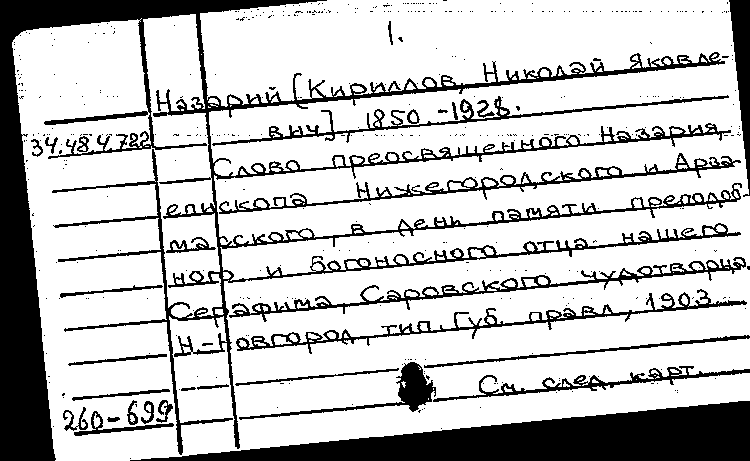 1.
Назарий [Кириллов, Николай Яковле-
вич], 1850.-1928.
34.48.4.722
Слово преосвященного Назария,
епископа Нижегородского и Арза-
масского, в день памяти преподоб-
ного и богоносного отца нашего
Серафима, Саровского чудотворца.
Н.-Новгород, тип. Губ. правл, 1903.
См. след. карт.
260-699